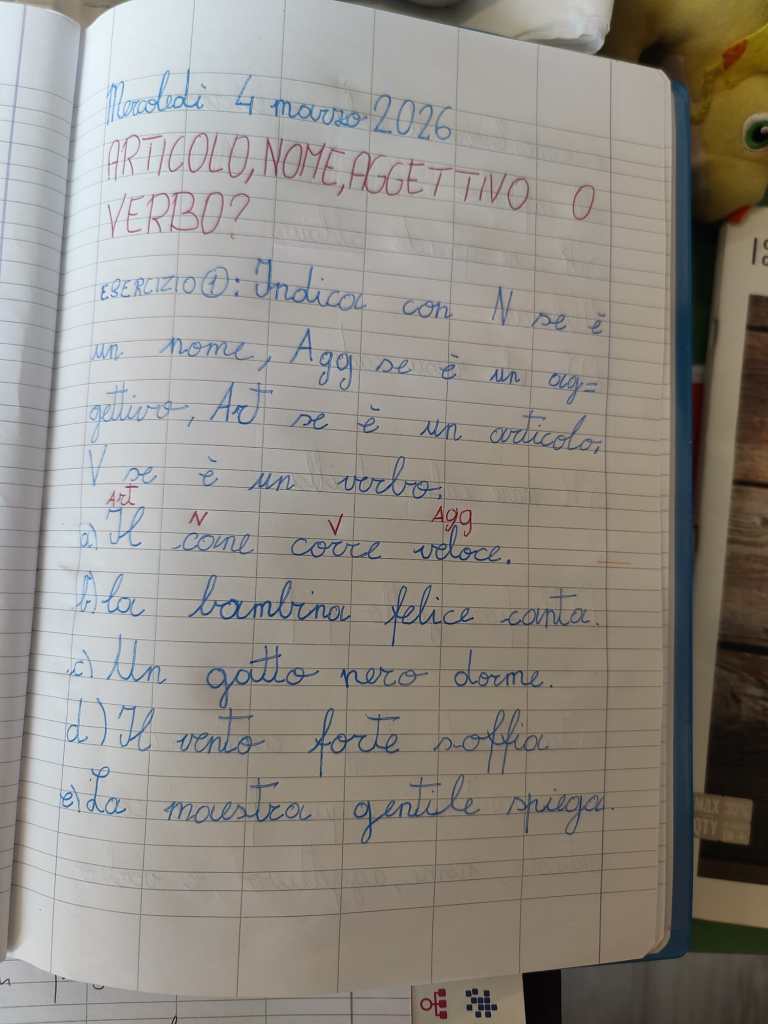 Mercoledì 4 marzo 2026
ARTICOLO, NOME, AGGETTIVO O
VERBO?
ESERCIZIO ①: Indica con N se è
un nome, Agg se è un ag=
gettivo, Art se è un articolo,
V se è un verbo.
Art N V Agg
a) Il cane corre veloce.
b) La bambina felice canta.
c) Un gatto nero dorme.
d) Il vento forte soffia
e) La maestra gentile spiega.